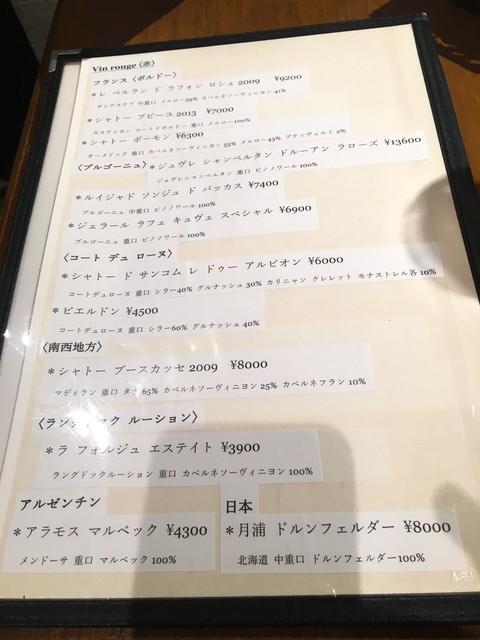 Vin rouge〈赤〉
フランス〈ボルドー〉
＊レ ペルラン ド ラフォン ロシェ 2009 ¥9200
サンテステフ 中重口 メルロー59% カベルネソーヴィニヨン41%
＊シャトー プピーユ 2013 ¥7000
カスティヨン コートドボルドー 重口 メルロー100%
＊シャトー ボーモン ¥6300
オーメドック 重口 カベルネソーヴィニヨン 55% メルロー43% プティヴェルド 2%
〈ブルゴーニュ〉＊ジュヴレ シャンベルタン ドルーアン ラローズ ¥13600
ジュヴレシャンベルタン 重口 ピノノワール 100%
＊ルイジャド ソンジュ ド バッカス ¥7400
ブルゴーニュ 中重口 ピノノワール 100%
＊ジェラール ラフェ キュヴェ スペシャル ¥6900
ブルゴーニュ 重口 ピノノワール 100%
〈コート デュ ローヌ〉
＊シャトー ド サンコム レ ドゥー アルビオン ¥6000
コートデュローヌ 重口 シラー40% グルナッシュ 30% カリニャン クレレット モナストレル各 10%
＊ピエルドン ¥4500
コートデュローヌ 重口 シラー60% グルナッシュ 40%
〈南西地方〉
＊シャトー ブースカッセ 2009 ¥8000
マディラン 重口 タナ65% カベルネソーヴィニヨン 25% カベルネフラン 10%
〈ラングドック ルーション〉
＊ラ フォルジュ エステイト ¥3900
ラングドックルーション 重口 カベルネソーヴィニヨン 100%
アルゼンチン
＊アラモス マルベック ¥4300
メンドーサ 重口 マルベック 100%
日本
＊月浦 ドルンフェルダー ¥8000
北海道 中重口 ドルンフェルダー100%